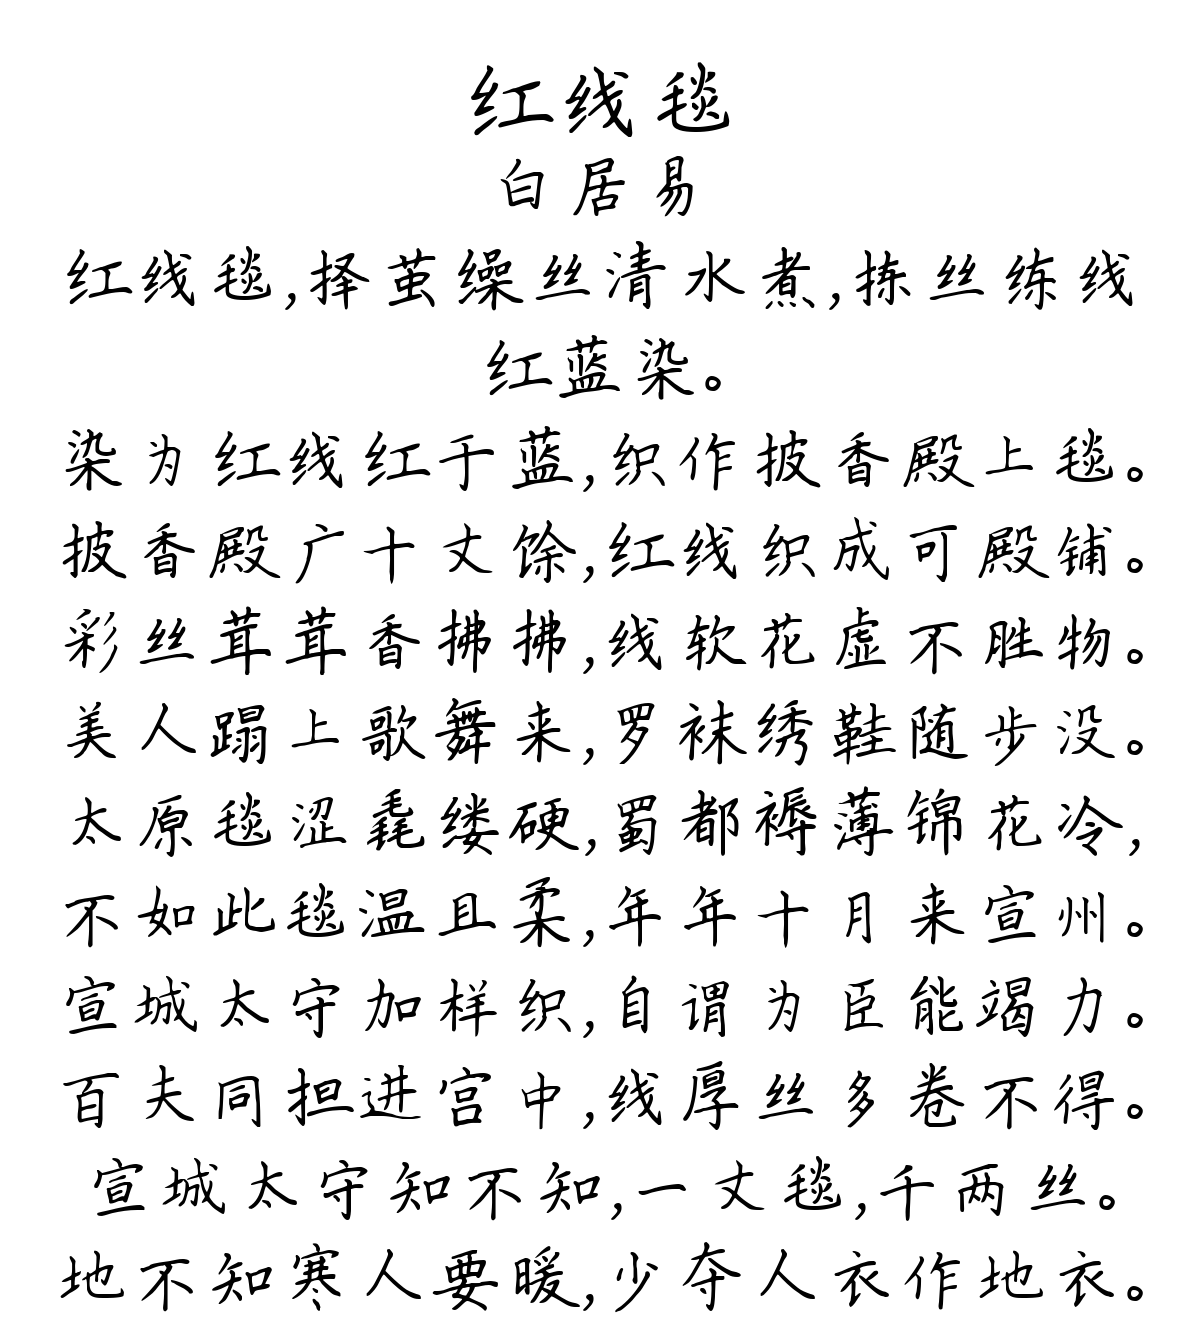 红线毯
白居易
红线毯,择茧缲丝清水煮,拣丝练线
红蓝染。
染为红线红于蓝,织作披香殿上毯。
披香殿广十丈馀,红线织成可殿铺。
彩丝茸茸香拂拂,线软花虚不胜物。
美人蹋上歌舞来,罗袜绣鞋随步没。
太原毯涩毳缕硬,蜀都褥薄锦花冷,
不如此毯温且柔,年年十月来宣州。
宣城太守加样织,自谓为臣能竭力。
百夫同担进宫中,线厚丝多卷不得。
宣城太守知不知,一丈毯,千两丝。
地不知寒人要暖,少夺人衣作地衣。